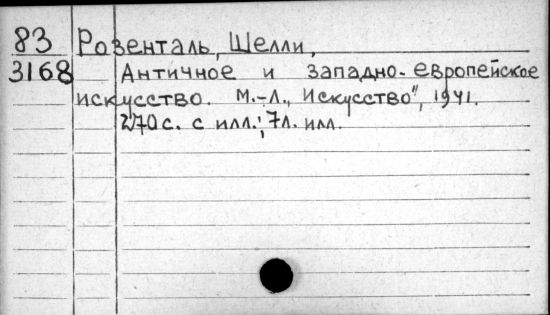 83 Розенталь, Шелли,
3168 Античное и западно-европейское
искусство. М.-Л., Искусство", 1941.
270 с. с илл.; 7л. илл.